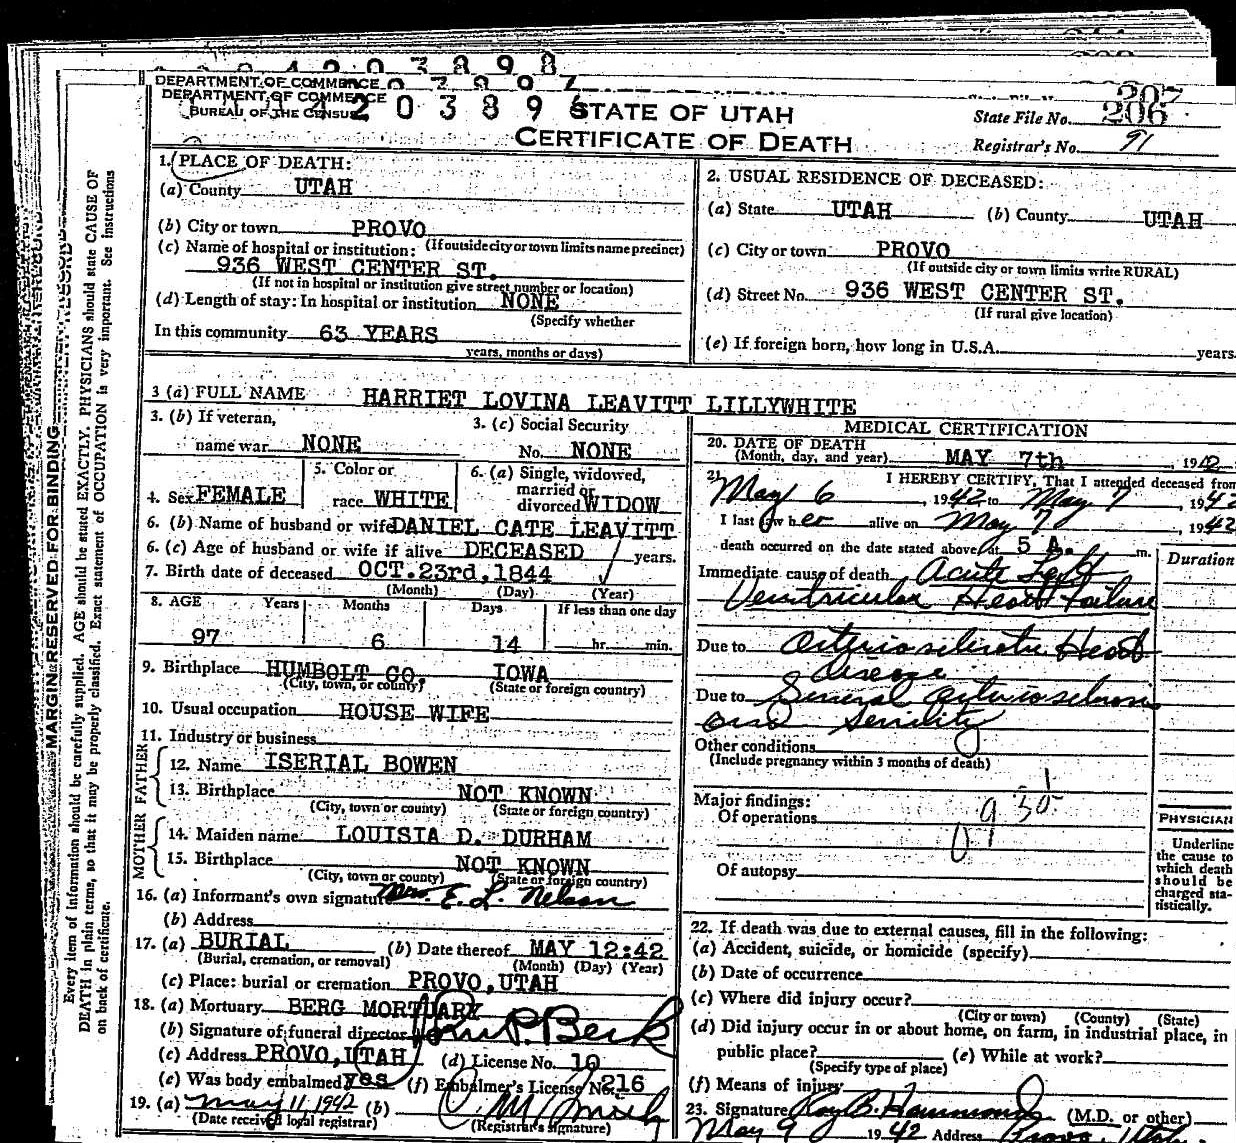 DEPARTMENT OF COMMERCE
DEPARTMENT OF COMMERCE
BUREAU OF THE CENSUS
2 0 3 8 9
STATE OF UTAH
CERTIFICATE OF DEATH
State File No. 206
Registrar's No. 91
MARGIN RESERVED FOR BINDING
Every item of information should be carefully supplied. AGE should be stated EXACTLY. PHYSICIANS should state CAUSE OF
DEATH in plain terms, so that it may be properly classified. Exact statement of OCCUPATION is very important. See instructions
on back of certificate.
1. PLACE OF DEATH:
(a) County UTAH
(b) City or town PROVO
(If outside city or town limits name precinct)
(c) Name of hospital or institution:
936 WEST CENTER ST.
(If not in hospital or institution give street number or location)
(d) Length of stay: In hospital or institution NONE
(Specify whether
In this community 63 YEARS
years, months or days)
2. USUAL RESIDENCE OF DECEASED:
(a) State UTAH (b) County UTAH
(c) City or town PROVO
(If outside city or town limits write RURAL)
(d) Street No. 936 WEST CENTER ST.
(If rural give location)
(e) If foreign born, how long in U.S.A. years.
3 (a) FULL NAME HARRIET LOVINA LEAVITT LILLYWHITE
3. (b) If veteran,
name war NONE
3. (c) Social Security
No. NONE
4. Sex FEMALE
5. Color or
race WHITE
6. (a) Single, widowed,
married or
divorced WIDOW
6. (b) Name of husband or wife DANIEL CATE LEAVITT
6. (c) Age of husband or wife if alive DECEASED years.
7. Birth date of deceased OCT. 23rd, 1844
(Month) (Day) (Year)
8. AGE Years Months Days If less than one day
97 6 14 hr. min.
9. Birthplace HUMBOLT CO. IOWA
(City, town, or county) (State or foreign country)
10. Usual occupation HOUSE WIFE
11. Industry or business
FATHER
12. Name ISERIAL BOWEN
13. Birthplace NOT KNOWN
(City, town or county) (State or foreign country)
MOTHER
14. Maiden name LOUISIA D. DURHAM
15. Birthplace NOT KNOWN
(City, town or county) (State or foreign country)
16. (a) Informant's own signature Mrs. E. L. Nelson
(b) Address
17. (a) BURIAL (b) Date thereof MAY 12:42
(Burial, cremation, or removal) (Month) (Day) (Year)
(c) Place: burial or cremation PROVO, UTAH
18. (a) Mortuary BERG MORTUARY
(b) Signature of funeral director
(c) Address PROVO, UTAH (d) License No. 10
(e) Was body embalmed yes (f) Embalmer's License No. 216
19. (a) May 11 1942 (b)
(Date received local registrar) (Registrar's signature)
MEDICAL CERTIFICATION
20. DATE OF DEATH
(Month, day, and year) MAY 7th, 1942
21. I HEREBY CERTIFY, That I attended deceased from
May 6, 1942 to May 7, 1942
I last saw her alive on May 7, 1942
death occurred on the date stated above, at 5 A. m.
Duration
Immediate cause of death Acute Left
Ventricular Heart Failure
Due to Arteriosclerotic Heart
disease
Due to General Arteriosclerosis
and Senility
Other conditions
(Include pregnancy within 3 months of death)
Major findings:
Of operations
Of autopsy
PHYSICIAN
Underline
the cause to
which death
should be
charged sta-
tistically.
22. If death was due to external causes, fill in the following:
(a) Accident, suicide, or homicide (specify)
(b) Date of occurrence
(c) Where did injury occur?
(City or town) (County) (State)
(d) Did injury occur in or about home, on farm, in industrial place, in
public place? (e) While at work?
(Specify type of place)
(f) Means of injury
23. Signature Roy B. Hammond (M.D. or other)
May 9 1942 Address Provo Utah